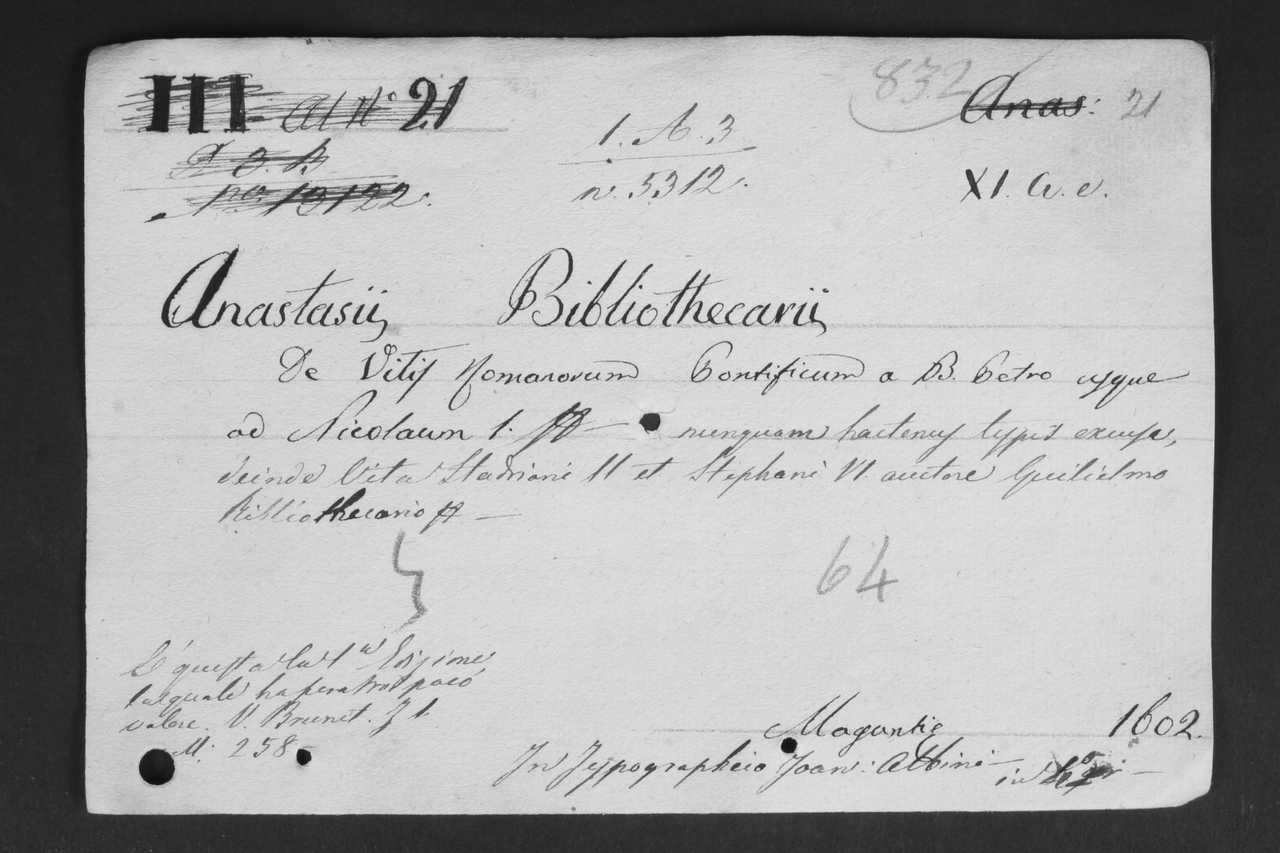 III al N° 21
832
Anas: 21
1. A. 3
n. 5312.
no. 19122.
XI. a. e.
Anastasii Bibliothecarii
De Vitis Romanorum Pontificum a B. Petro usque
ad Nicolaum I. nunquam hactenus typis excusa,
deinde Vita Hadriani II et Stephani VI. auctore Guilielmo
Bibliothecario
64
È questa la 1a Edizione
la quale ha per altro poco
valore. V. Brunet. T 1.
258
Maguntie 1602.
In Typographeio Joan: Albini in